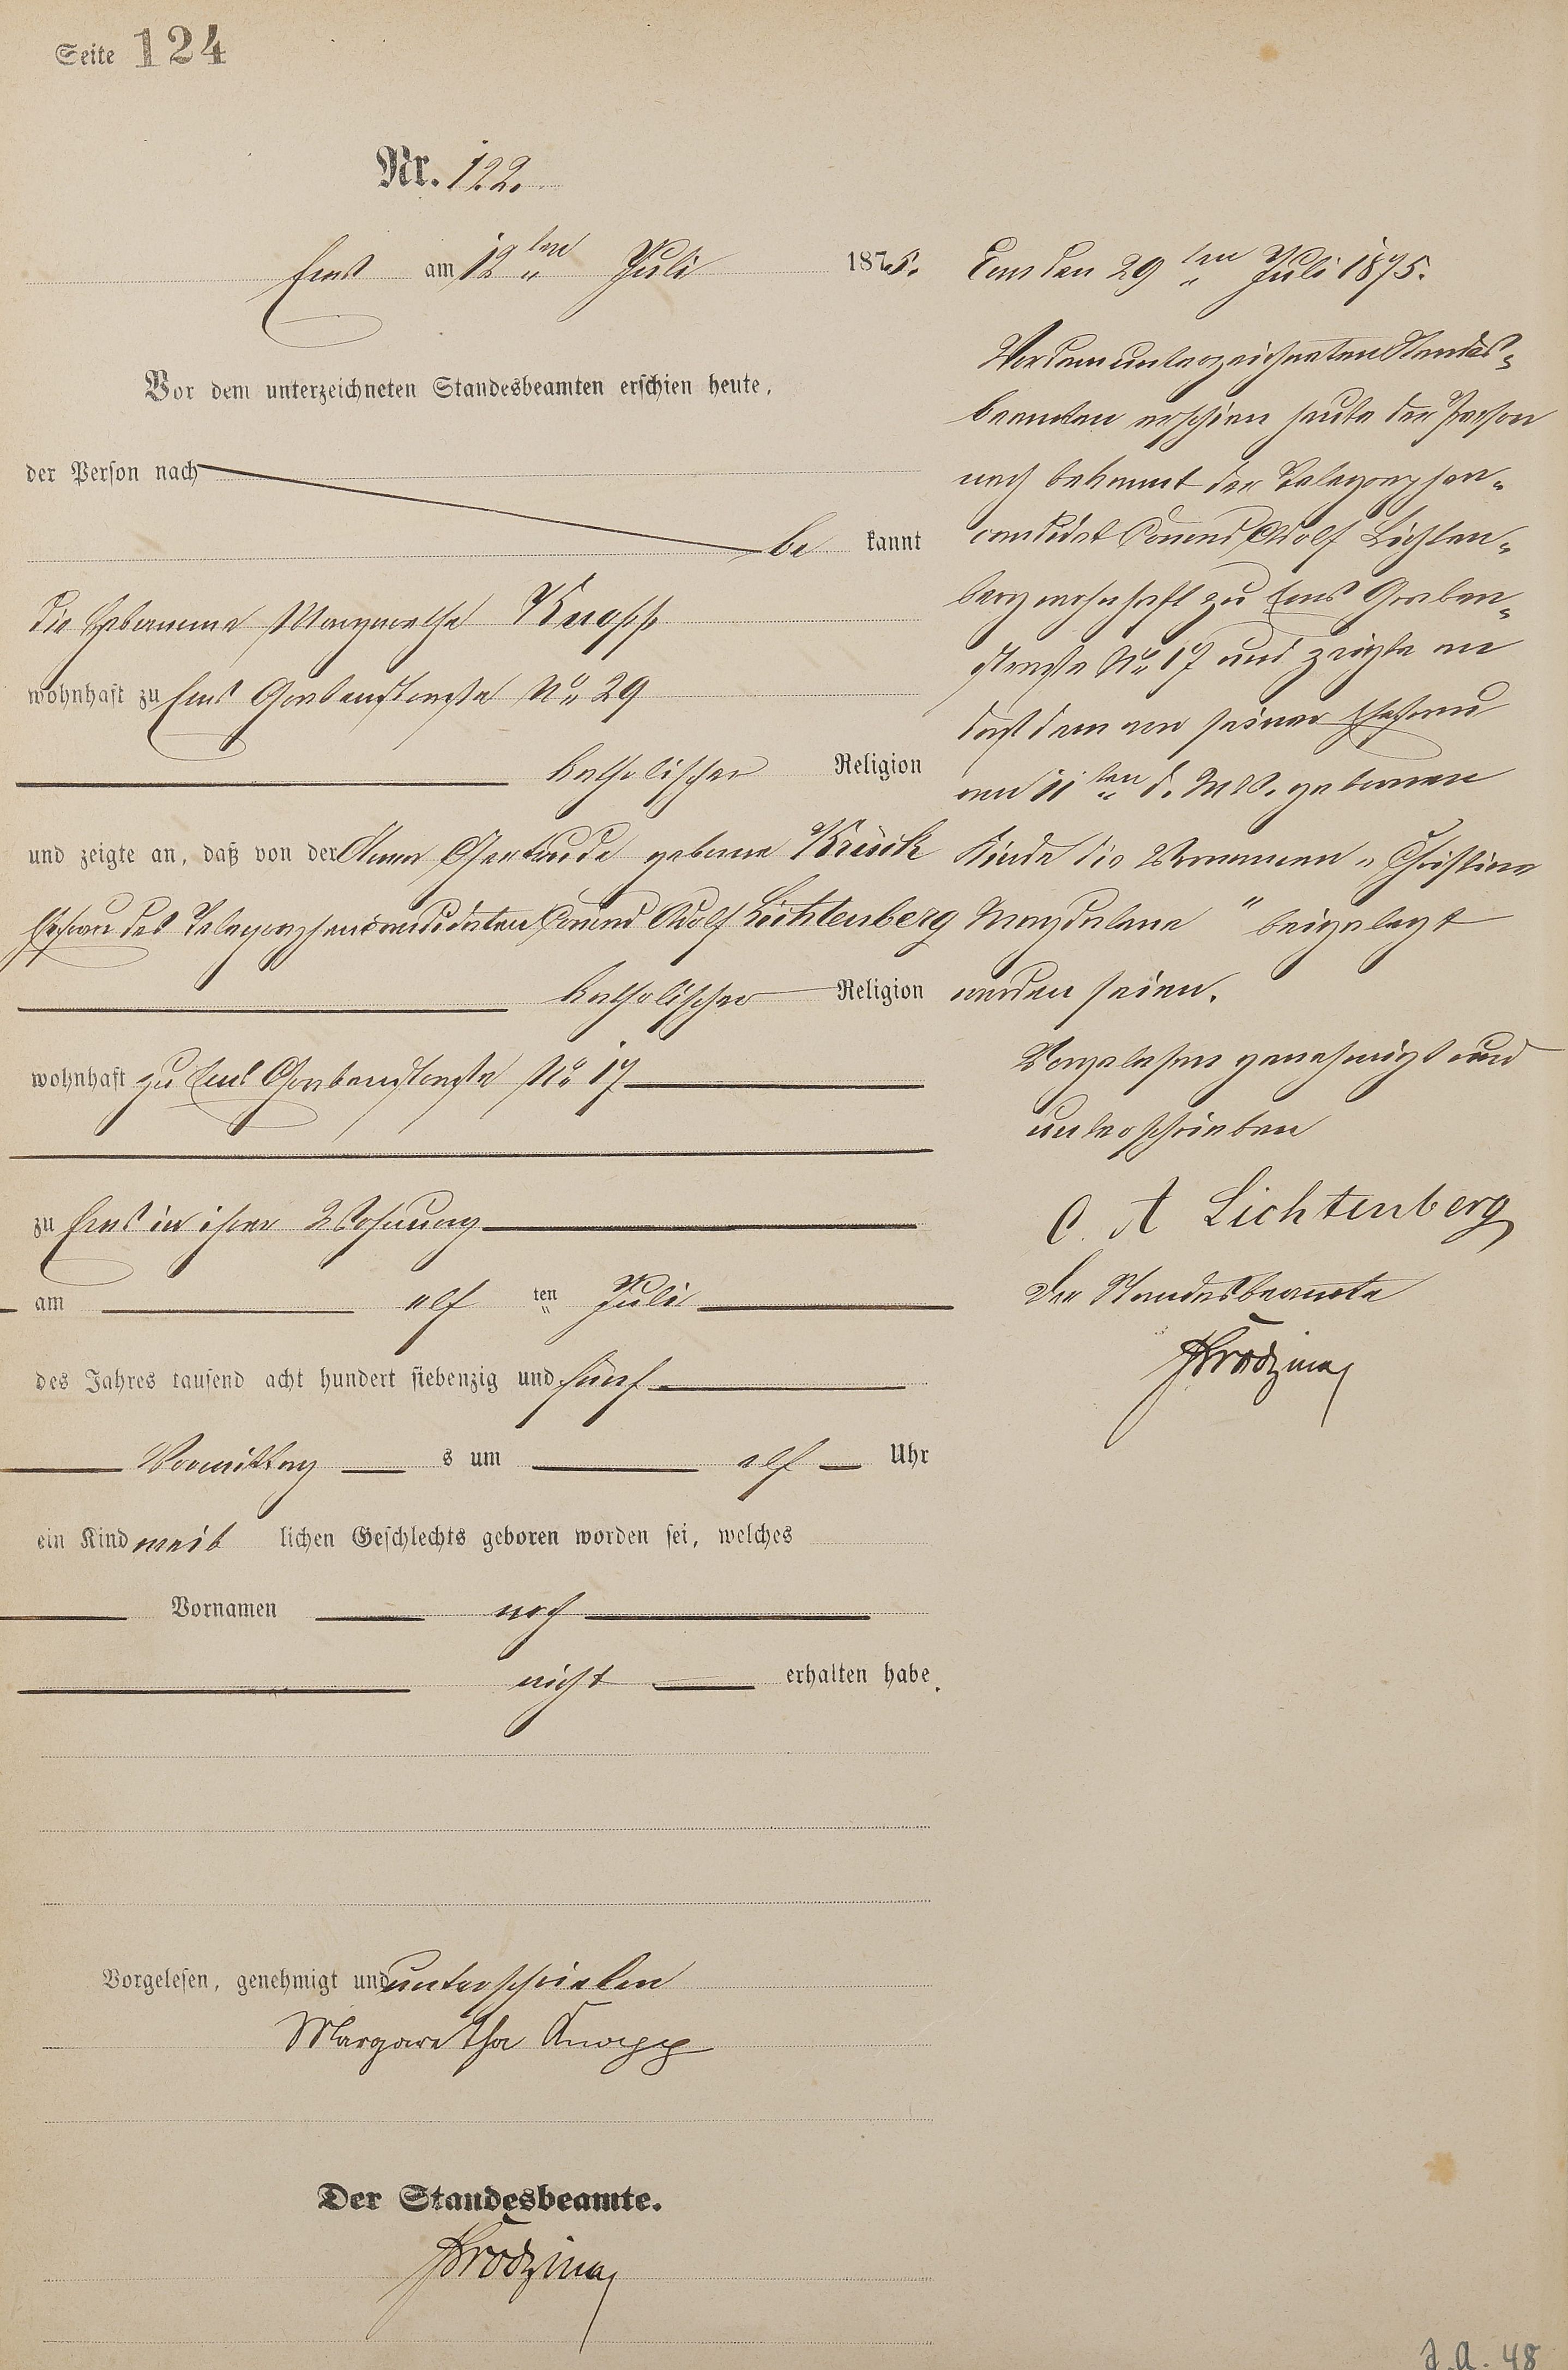 Seite 124
Nr. 122.
Ems am 12ten Juli 1875.
Vor dem unterzeichneten Standesbeamten erschien heute,
der Person nach
be kannt
die Hebamme Margarethe Knapp
wohnhaft zu Ems Grabenstraße No 29
katholischer Religion
und zeigte an, daß von der Anna Gertrude geborne Krück
Ehefrau des Telegraphencandidaten Conrad Adolf Lichtenberg
katholischer Religion
wohnhaft zu Ems Grabenstraße No 17
zu Ems in ihrer Wohnung
am elf ten Juli
des Jahres tausend acht hundert siebenzig und fünf
Vormittag s um elf Uhr
ein Kind weib lichen Geschlechts geboren worden sei, welches
Vornamen noch
nicht erhalten habe.
Vorgelesen, genehmigt und unterschrieben
Margaretha Knapp
Der Standesbeamte.
Ems den 29ten Juli 1875.
Vor dem unterzeichneten Standes-
beamten erschien heute der Person
nach bekannt der Telegraphen-
candidat Conrad Adolf Lichten-
berg wohnhaft zu Ems Graben-
straße No 17 und zeigte an
daß dem von seiner Ehefrau
am 11ten d. Mts. gebornen
Kinde die Vornamen „Christine
Magdalena" beigelegt
worden seien.
Vorgelesen genehmigt und
unterschrieben
C. A Lichtenberg
Der Standesbeamte
J. A. 48